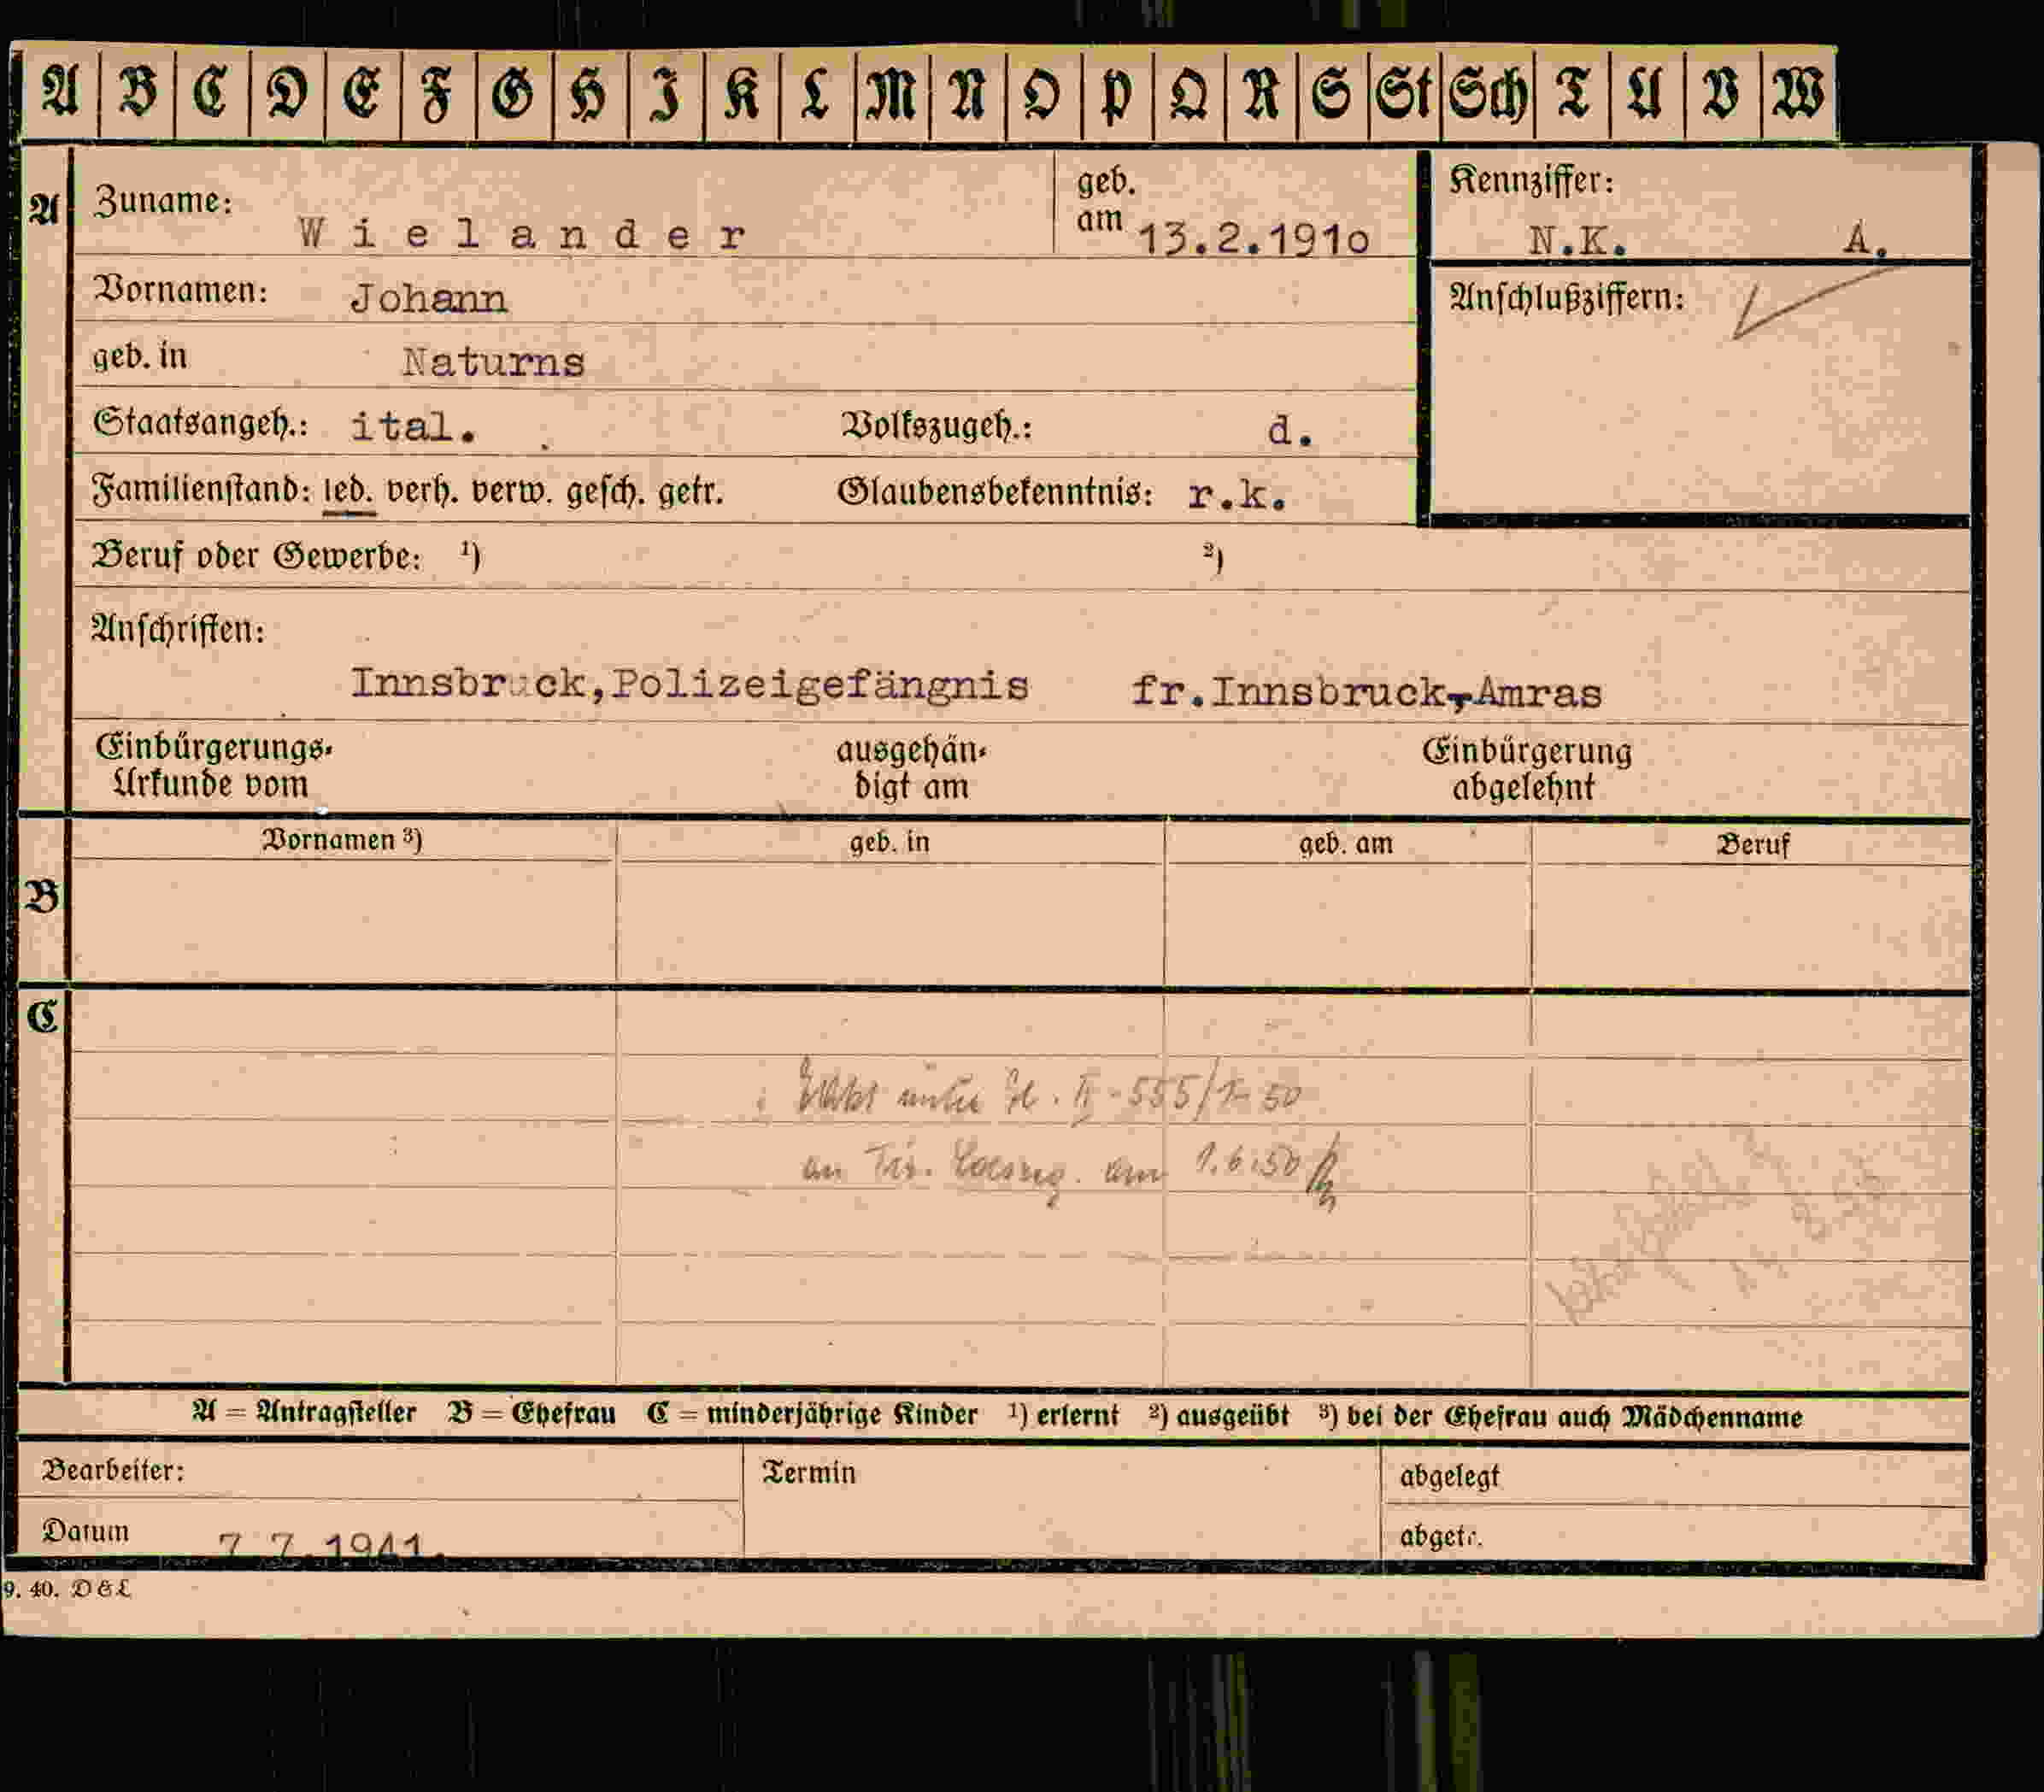 A B C D E F G H I K L M N O P Q R S St Sch T U V W
A Zuname: Wielander geb. am 13.2.1910 Kennziffer: N.K. A.
Vornamen: Johann Anschlußziffern:
geb. in Naturns
Staatsangeh.: ital. Volkszugeh.: d.
Familienstand: led. verh. verw. gesch. getr. Glaubensbekenntnis: r.k.
Beruf oder Gewerbe: ¹) ²)
Anschriften:
Innsbruck,Polizeigefängnis fr.Innsbruck,Amras
Einbürgerungs- ausgehän- Einbürgerung
Urkunde vom digt am abgelehnt
Vornamen ³) geb. in geb. am Beruf
B
C
unter Zl. II-555/1-50
an Tir. am 1.6.50
A = Antragsteller B = Ehefrau C = minderjährige Kinder ¹) erlernt ²) ausgeübt ³) bei der Ehefrau auch Mädchenname
Bearbeiter: Termin abgelegt
Datum 7.7.1941. abgetr.
9. 40. D & L